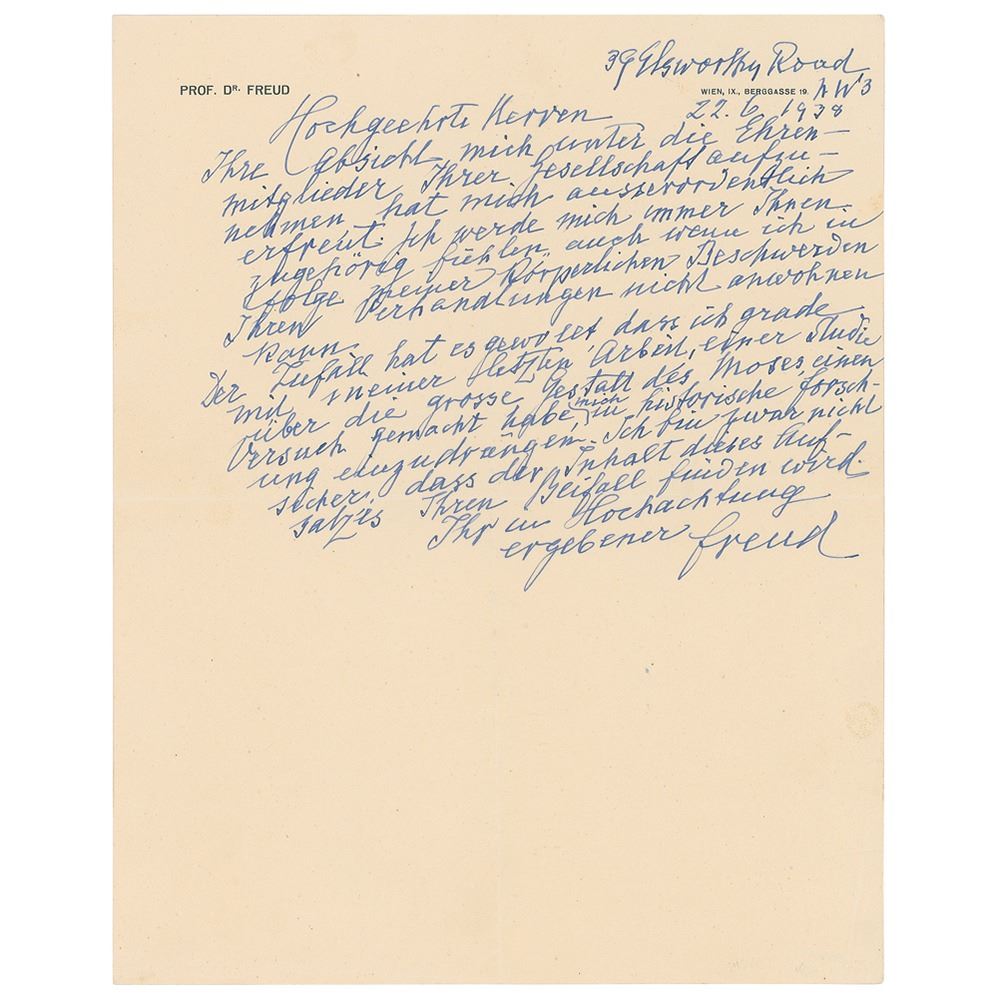 39 Elsworthy Road
PROF. DR. FREUD
WIEN, IX., BERGGASSE 19. NW3
22.6.1938
Hochgeehrte Herren
Ihre Absicht mich unter die Ehren-
mitglieder Ihrer Gesellschaft aufzu-
nehmen hat mich ausserordentlich
erfreut. Ich werde mich immer Ihnen
zugehörig fühlen auch wenn ich in
folge meiner körperlichen Beschwerden
Ihren Verhandlungen nicht anwohnen
kann.
Der Zufall hat es gewollt, dass ich grade
mit meiner letzten Arbeit, einer Studie
über die grosse Gestalt des Moses, einen
Versuch gemacht habe, mich in historische Forsch-
ung einzudrängen. Ich bin zwar nicht
sicher, dass der Inhalt dieses Auf-
satzes Ihren Beifall finden wird.
Ihr in Hochachtung
ergebener Freud